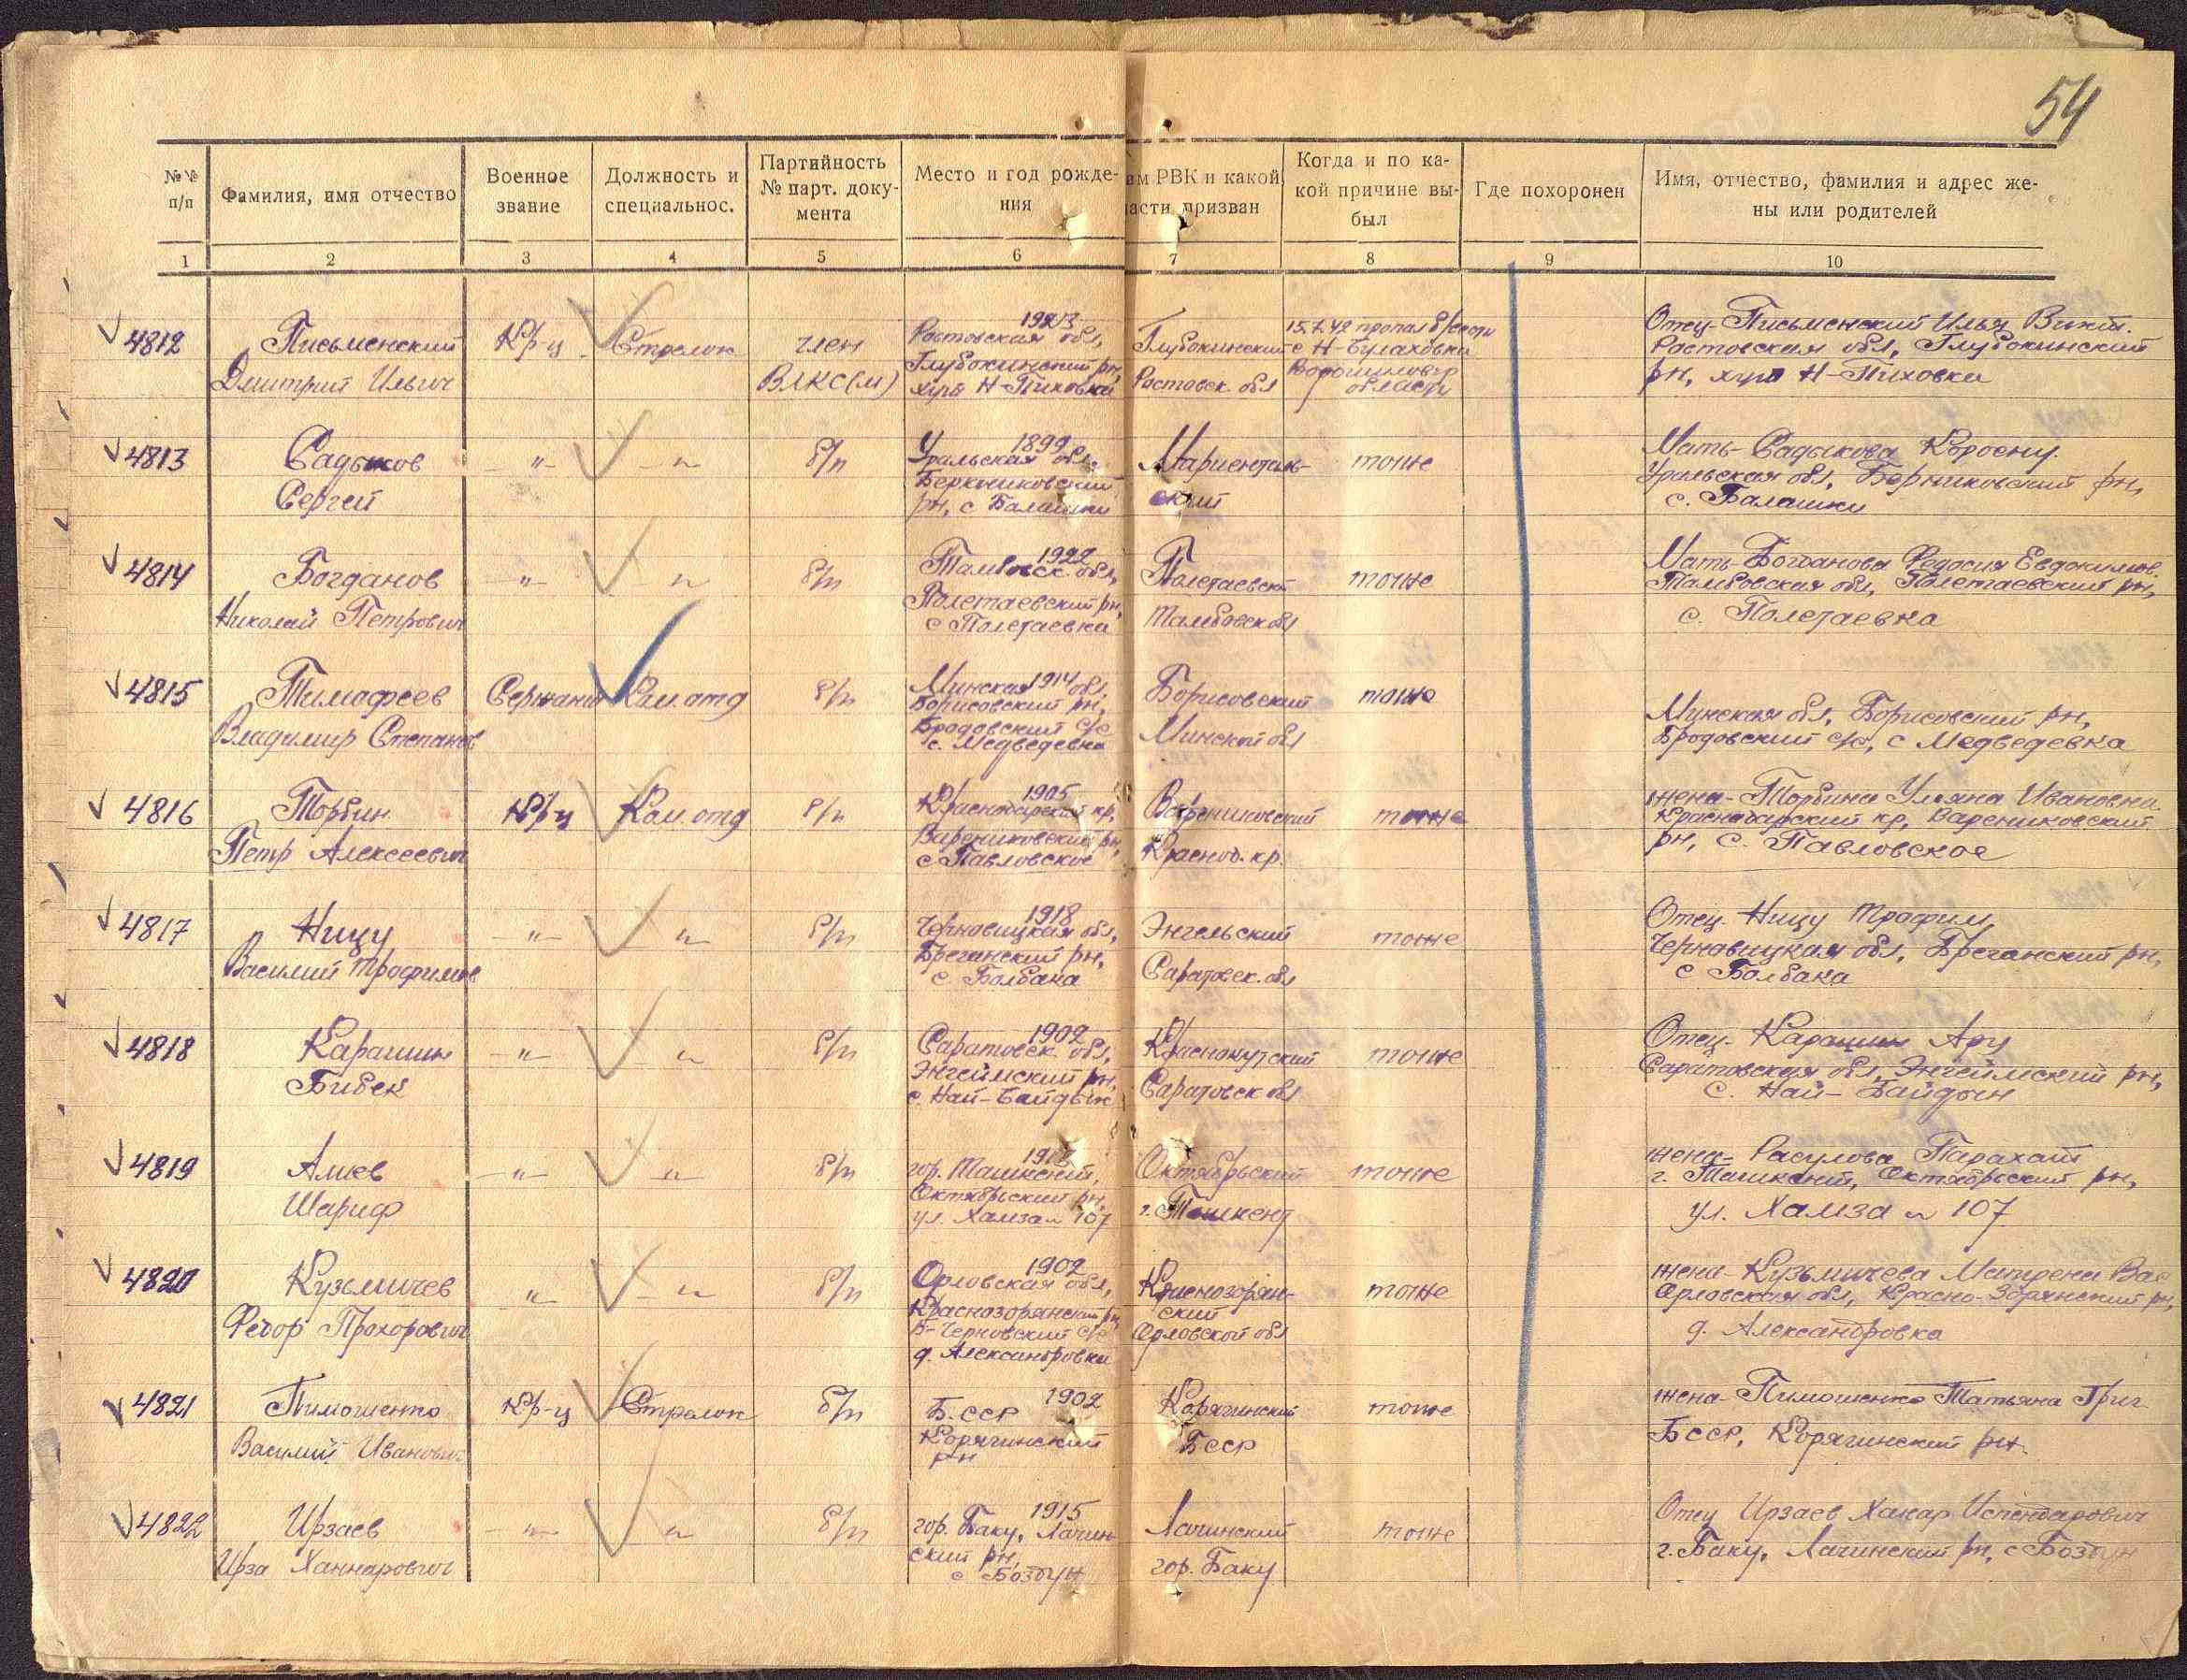 54
№№ п/п
Фамилия, имя отчество
Военное звание
Должность и специальнос.
Партийность № парт. доку-мента
Место и год рожде-ния
им РВК и какой
ласти призван
Когда и по ка-кой причине вы-был
Где похоронен
Имя, отчество, фамилия и адрес же-ны или родителей
1 2 3 4 5 6 7 8 9 10
4812 Письменский Кр-ц Стрелок член 1923 Глубокинский 15.7.42 пропал б/вести Отец- Письменский Илья
Дмитрий Ильич ВЛКС(м) Ростовская обл, Ростовск. обл с Н-Булаховка Ростовская обл, Глубокинский
Глубокинский рн, Ворошиловгр рн, хутр Н-Пиховка
хутр Н-Пиховка области
4813 Садыков -"- -"- б/п 1899 Мариенталь- тоже Мать- Садыкова
Сергей Уральская обл. ский Уральская обл, рн,
рн, с Балашки с. Балашки
4814 Богданов -"- -"- б/п 1922 Полетаевск тоже Мать- Богданова Федосия Евдокимов.
Николай Петрович Тамбовск. обл, Тамбовск обл Тамбовская обл, Полетаевский рн,
Полетаевский рн, с. Полетаевка
с Полетаевка
4815 Тимофеев Сержант Ком. отд б/п 1914 Борисовский тоже Минская обл, Борисовский рн,
Владимир Степанов Минская обл. Минской обл Бродовский с/с, с Медведевка
Борисовский рн,
Бродовский с/с
с. Медведевка
4816 Торбин Кр-ц Ком. отд б/п 1905 Варениковский тоже жена- Торбина Ульяна Ивановна
Петр Алексеевич Краснодарский кр, Краснод. кр. Краснодарский кр, Варениковский
Варениковский рн, рн, с. Павловское
с Павловское
4817 Ницу -"- -"- б/п 1918 Энгельский тоже Отец- Ницу Трофим
Василий Трофимов Черновицкая обл, Саратовск. обл Черновицкая обл, Бреганский рн,
Бреганский рн, с Болбака
с. Болбака
4818 Карашин -"- -"- б/п 1902 Краснокутский тоже Отец- Карашин
Бибек Саратовск. обл, Саратовск обл Саратовская обл, Энгеймский рн,
Энгеймский рн, с. Най-Байдын
с. Най-Байдын
4819 Алиев -"- -"- б/п Октябрьский тоже жена- Расулова Парахат
Шариф гор. Ташкент, г. Ташкент г. Ташкент, Октябрьский рн,
Октябрьский рн, ул. Хамза 107
ул. Хамза 107
4820 Кузьмичев -"- -"- б/п 1902 Краснозорян- тоже жена- Кузьмичева Матрена Вас
Федор Прохорович Орловская обл, ский Орловская обл, Красно-Зорянский рн,
Краснозорянский рн, Орловской обл д. Александровка
В-Черновский с/с
д. Александровка
4821 Тимошенко Кр-ц Стрелок б/п 1902 Корягинский тоже жена- Тимошенко Татьяна Григ.
Василий Иванович Б. ССР БССР БССР, Корягинский рн.
Корягинский рн
4822 Ирзаев -"- -"- б/п 1915 Лачинский тоже Отец Ирзаев Ханар Испендарович
Ирза Ханнарович гор. Баку, Лачин- гор. Баку г. Баку, Лачинский рн, с Бозгун
ский рн,
с Бозгун